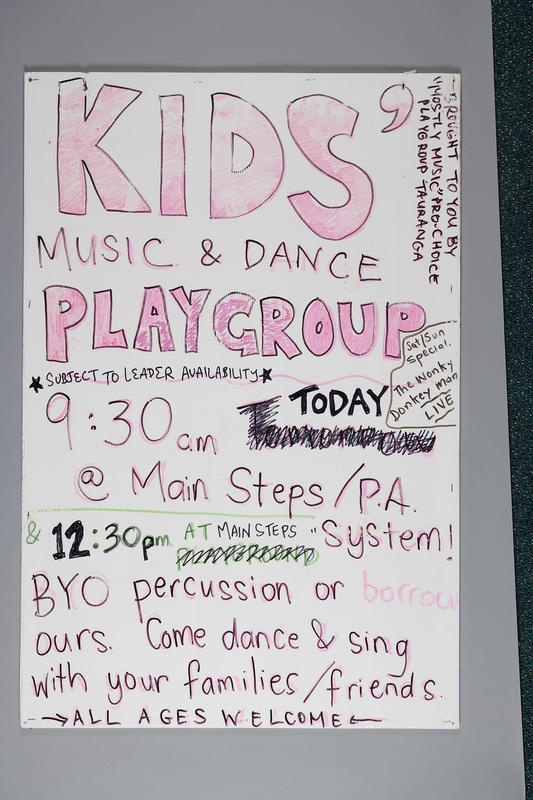 KIDS'
"BROUGHT TO YOU BY
"MOSTLY MUSIC" PRO-CHOICE
PLAYGROUP TAURANGA
MUSIC & DANCE
PLAYGROUP
Sat/Sun
Special.
The Wonky
Donkey Man
LIVE
★SUBJECT TO LEADER AVAILABILITY★
9:30am TODAY
@ Main Steps/P.A.
System!
& 12:30pm AT MAIN STEPS "
BYO percussion or borrow
ours. Come dance & sing
with your families/friends.
→ALL AGES WELCOME←